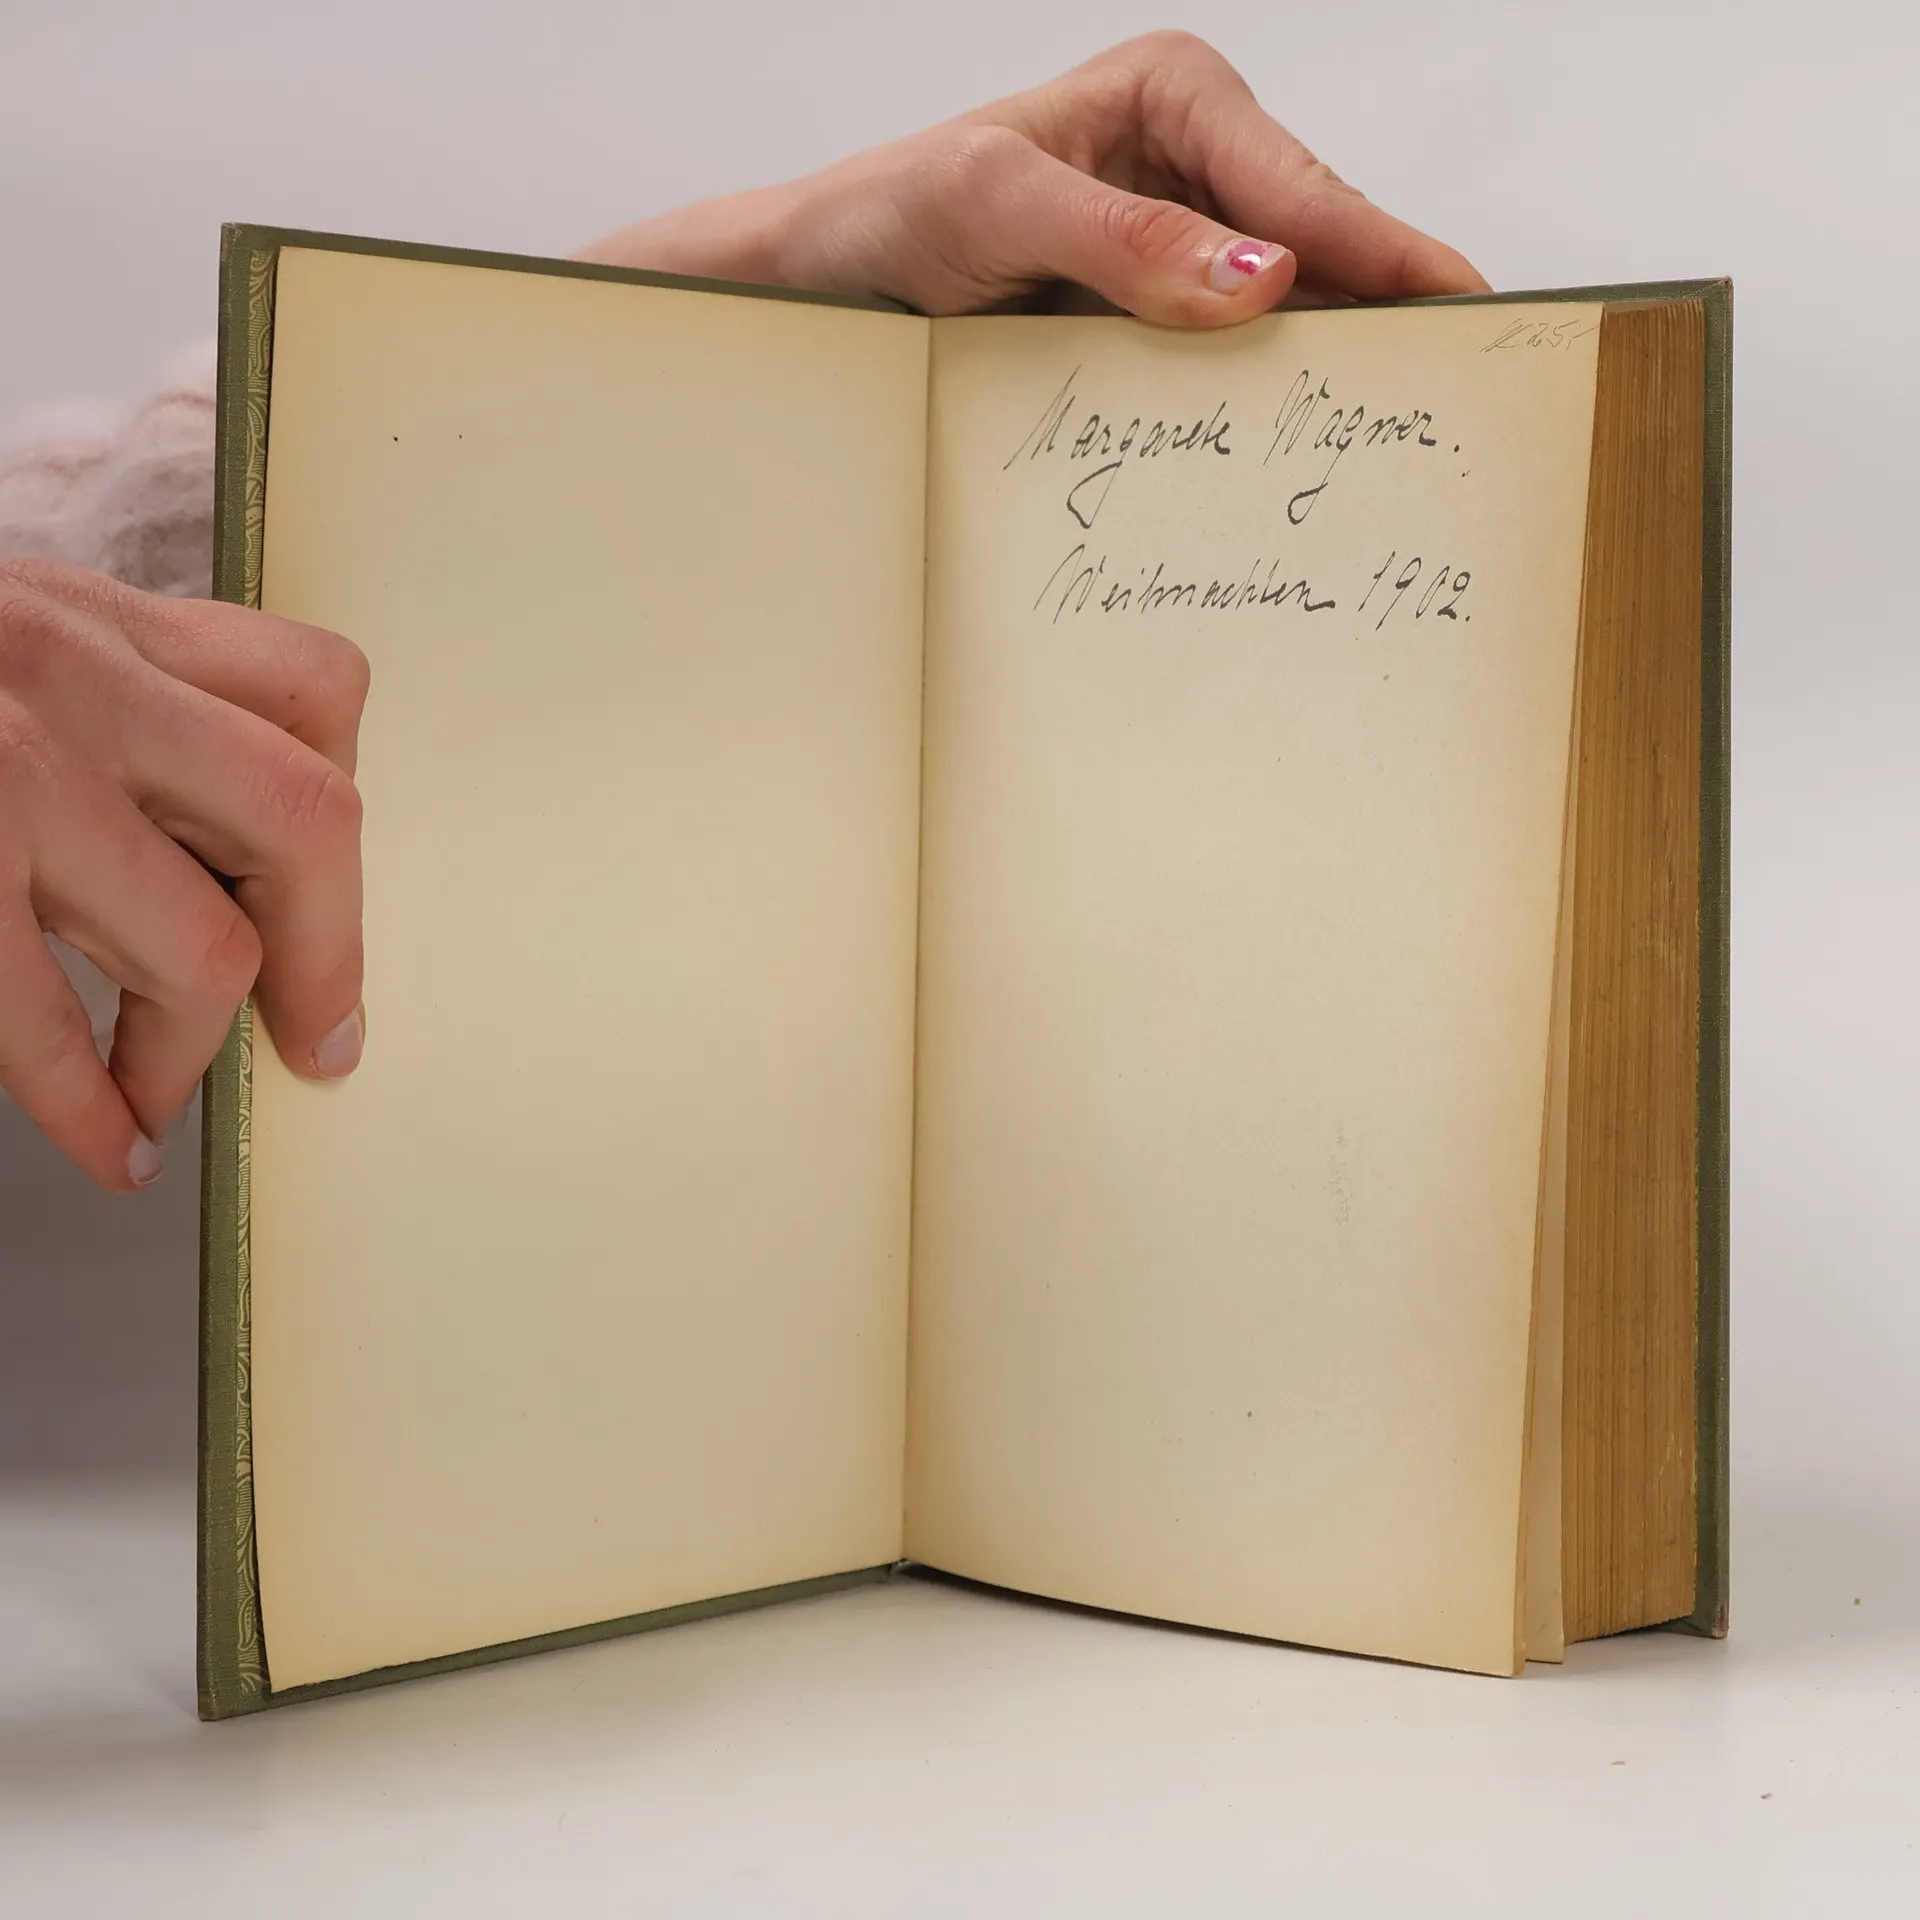 25,-
Margarete Wagner.
Weihnachten 1902.